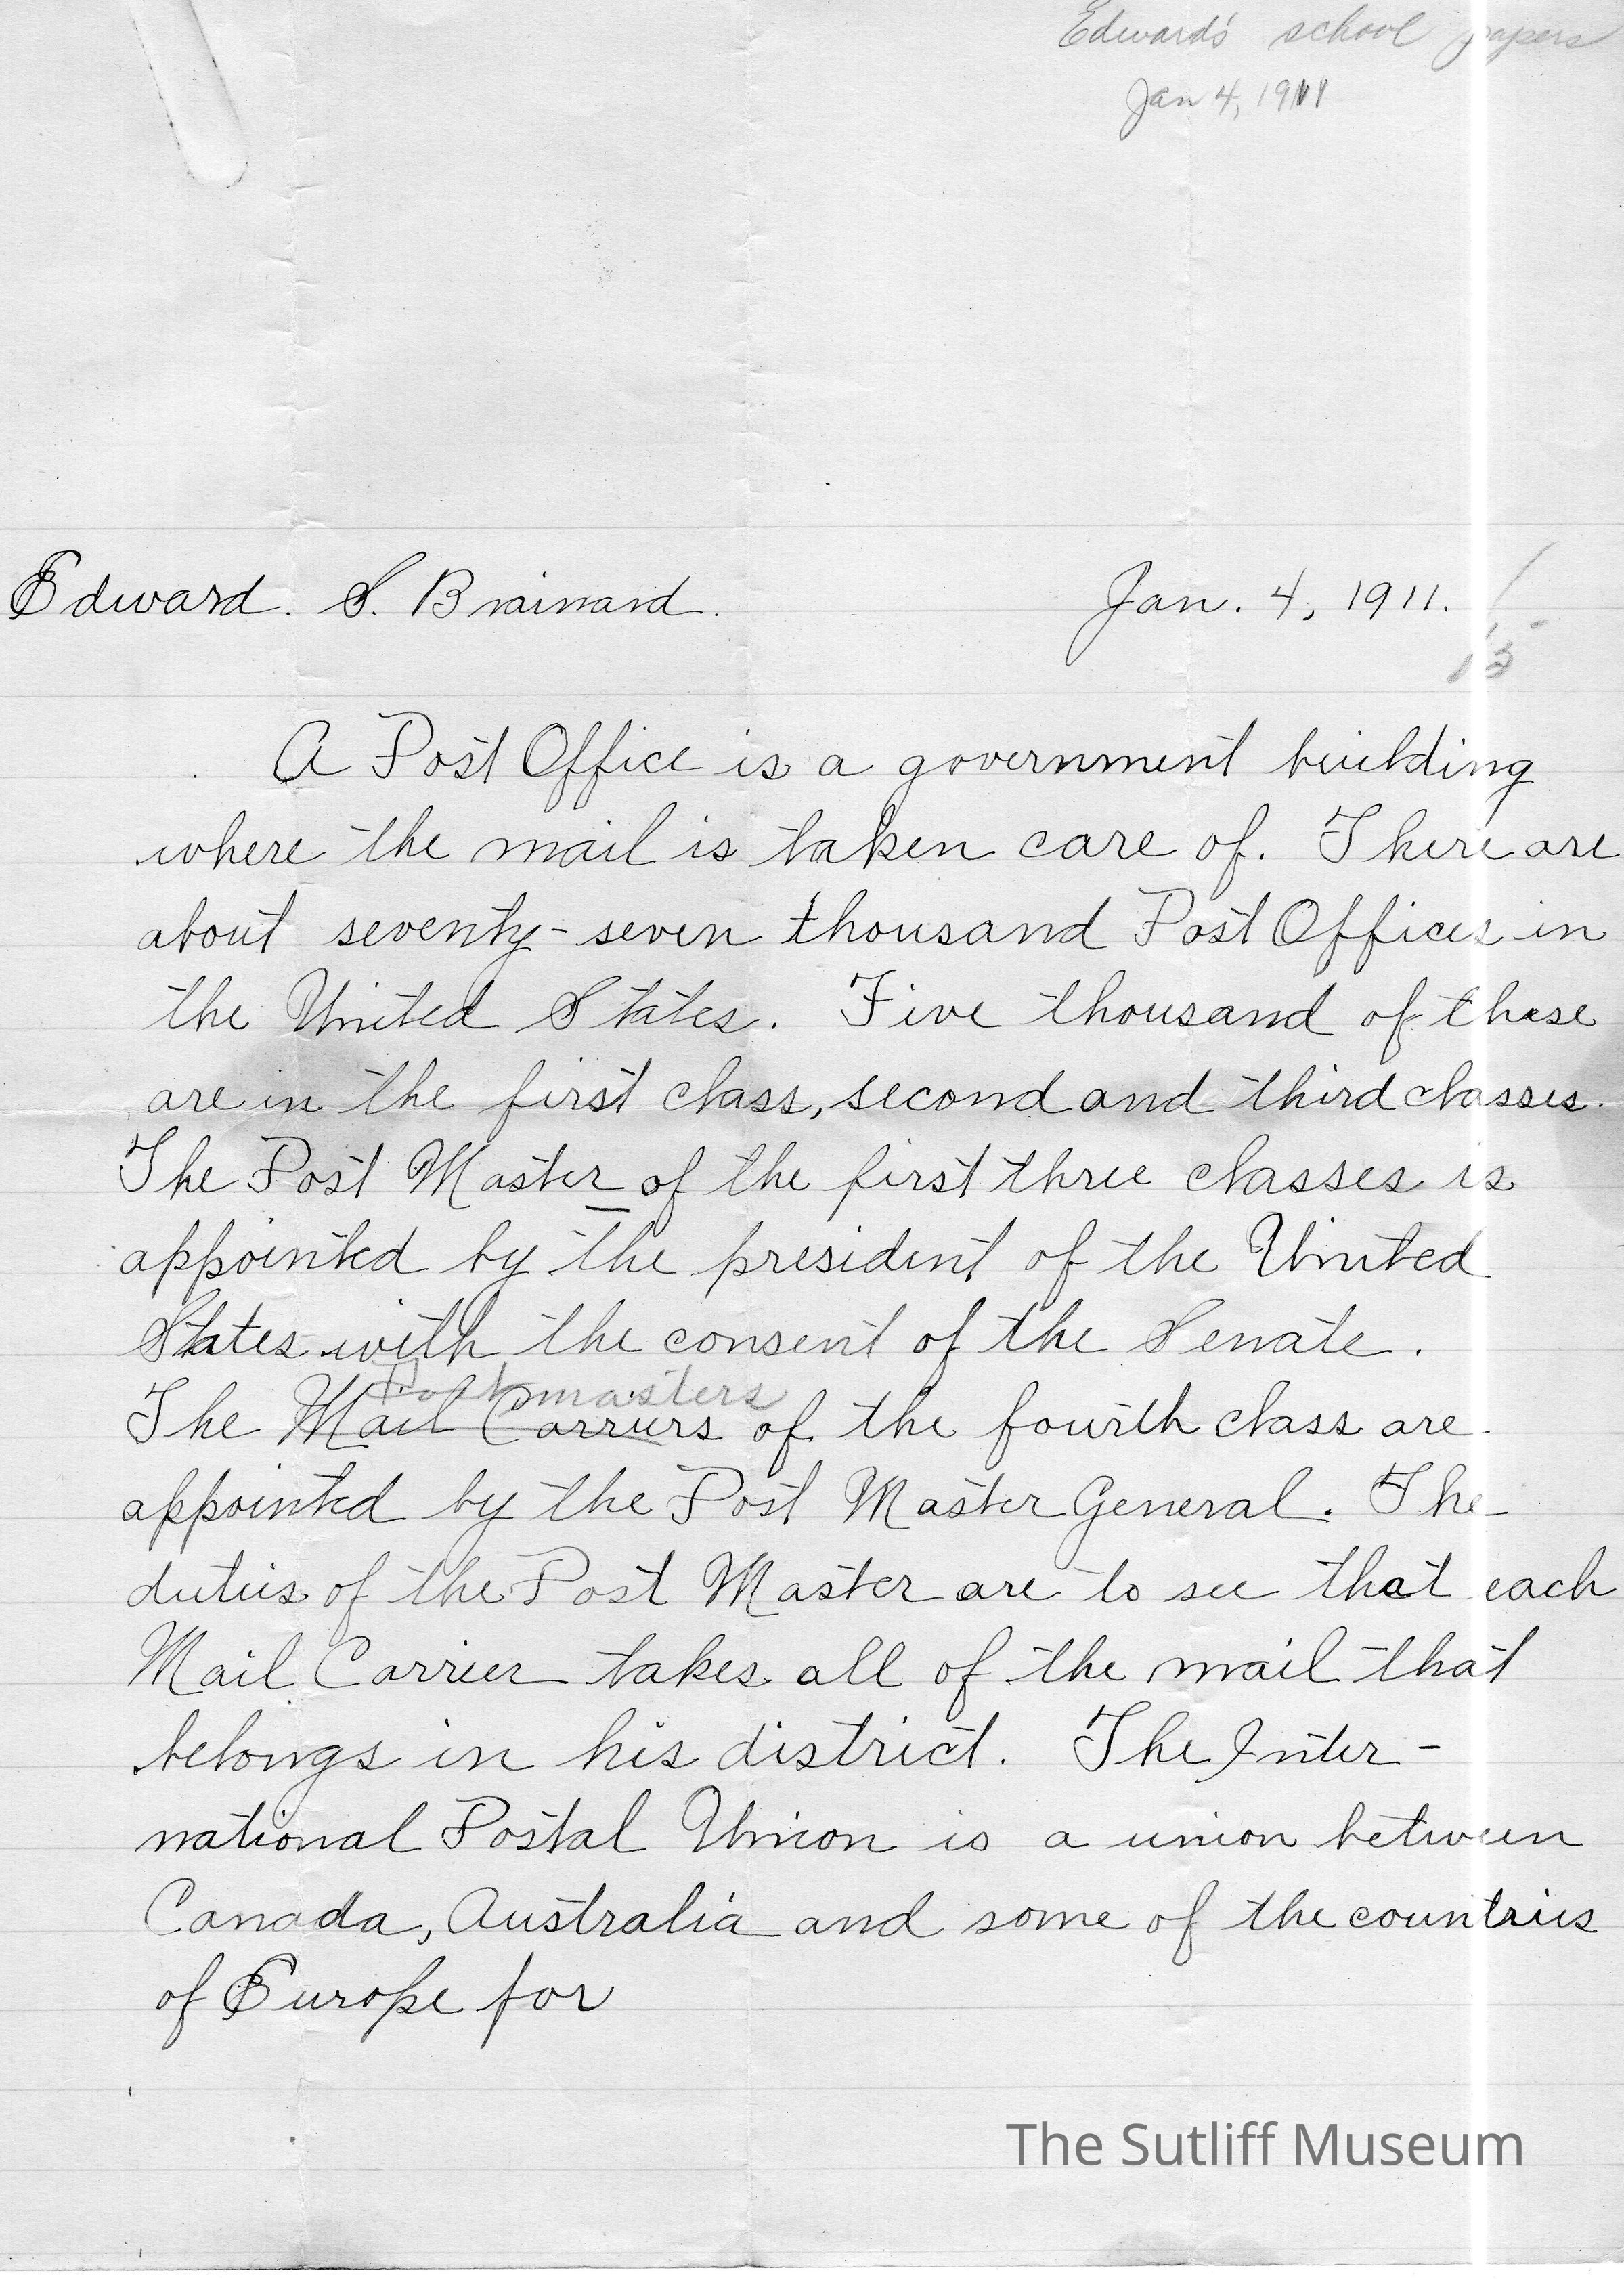 Edward's school papers
Jan 4, 1911
Edward. S. Brainard.
Jan. 4, 1911.
A Post Office is a government building
where the mail is taken care of. There are
about seventy-seven thousand Post Offices in
the United States. Five thousand of these
are in the first class, second and third classes.
The Post Master of the first three classes is
appointed by the president of the United
States with the consent of the Senate.
Postmasters
The Mail Carriers of the fourth class are
appointed by the Post Master General. The
duties of the Post Master are to see that each
Mail Carrier takes all of the mail that
belongs in his district. The Inter-
national Postal Union is a union between
Canada, Australia and some of the countries
of Europe for
The Sutliff Museum